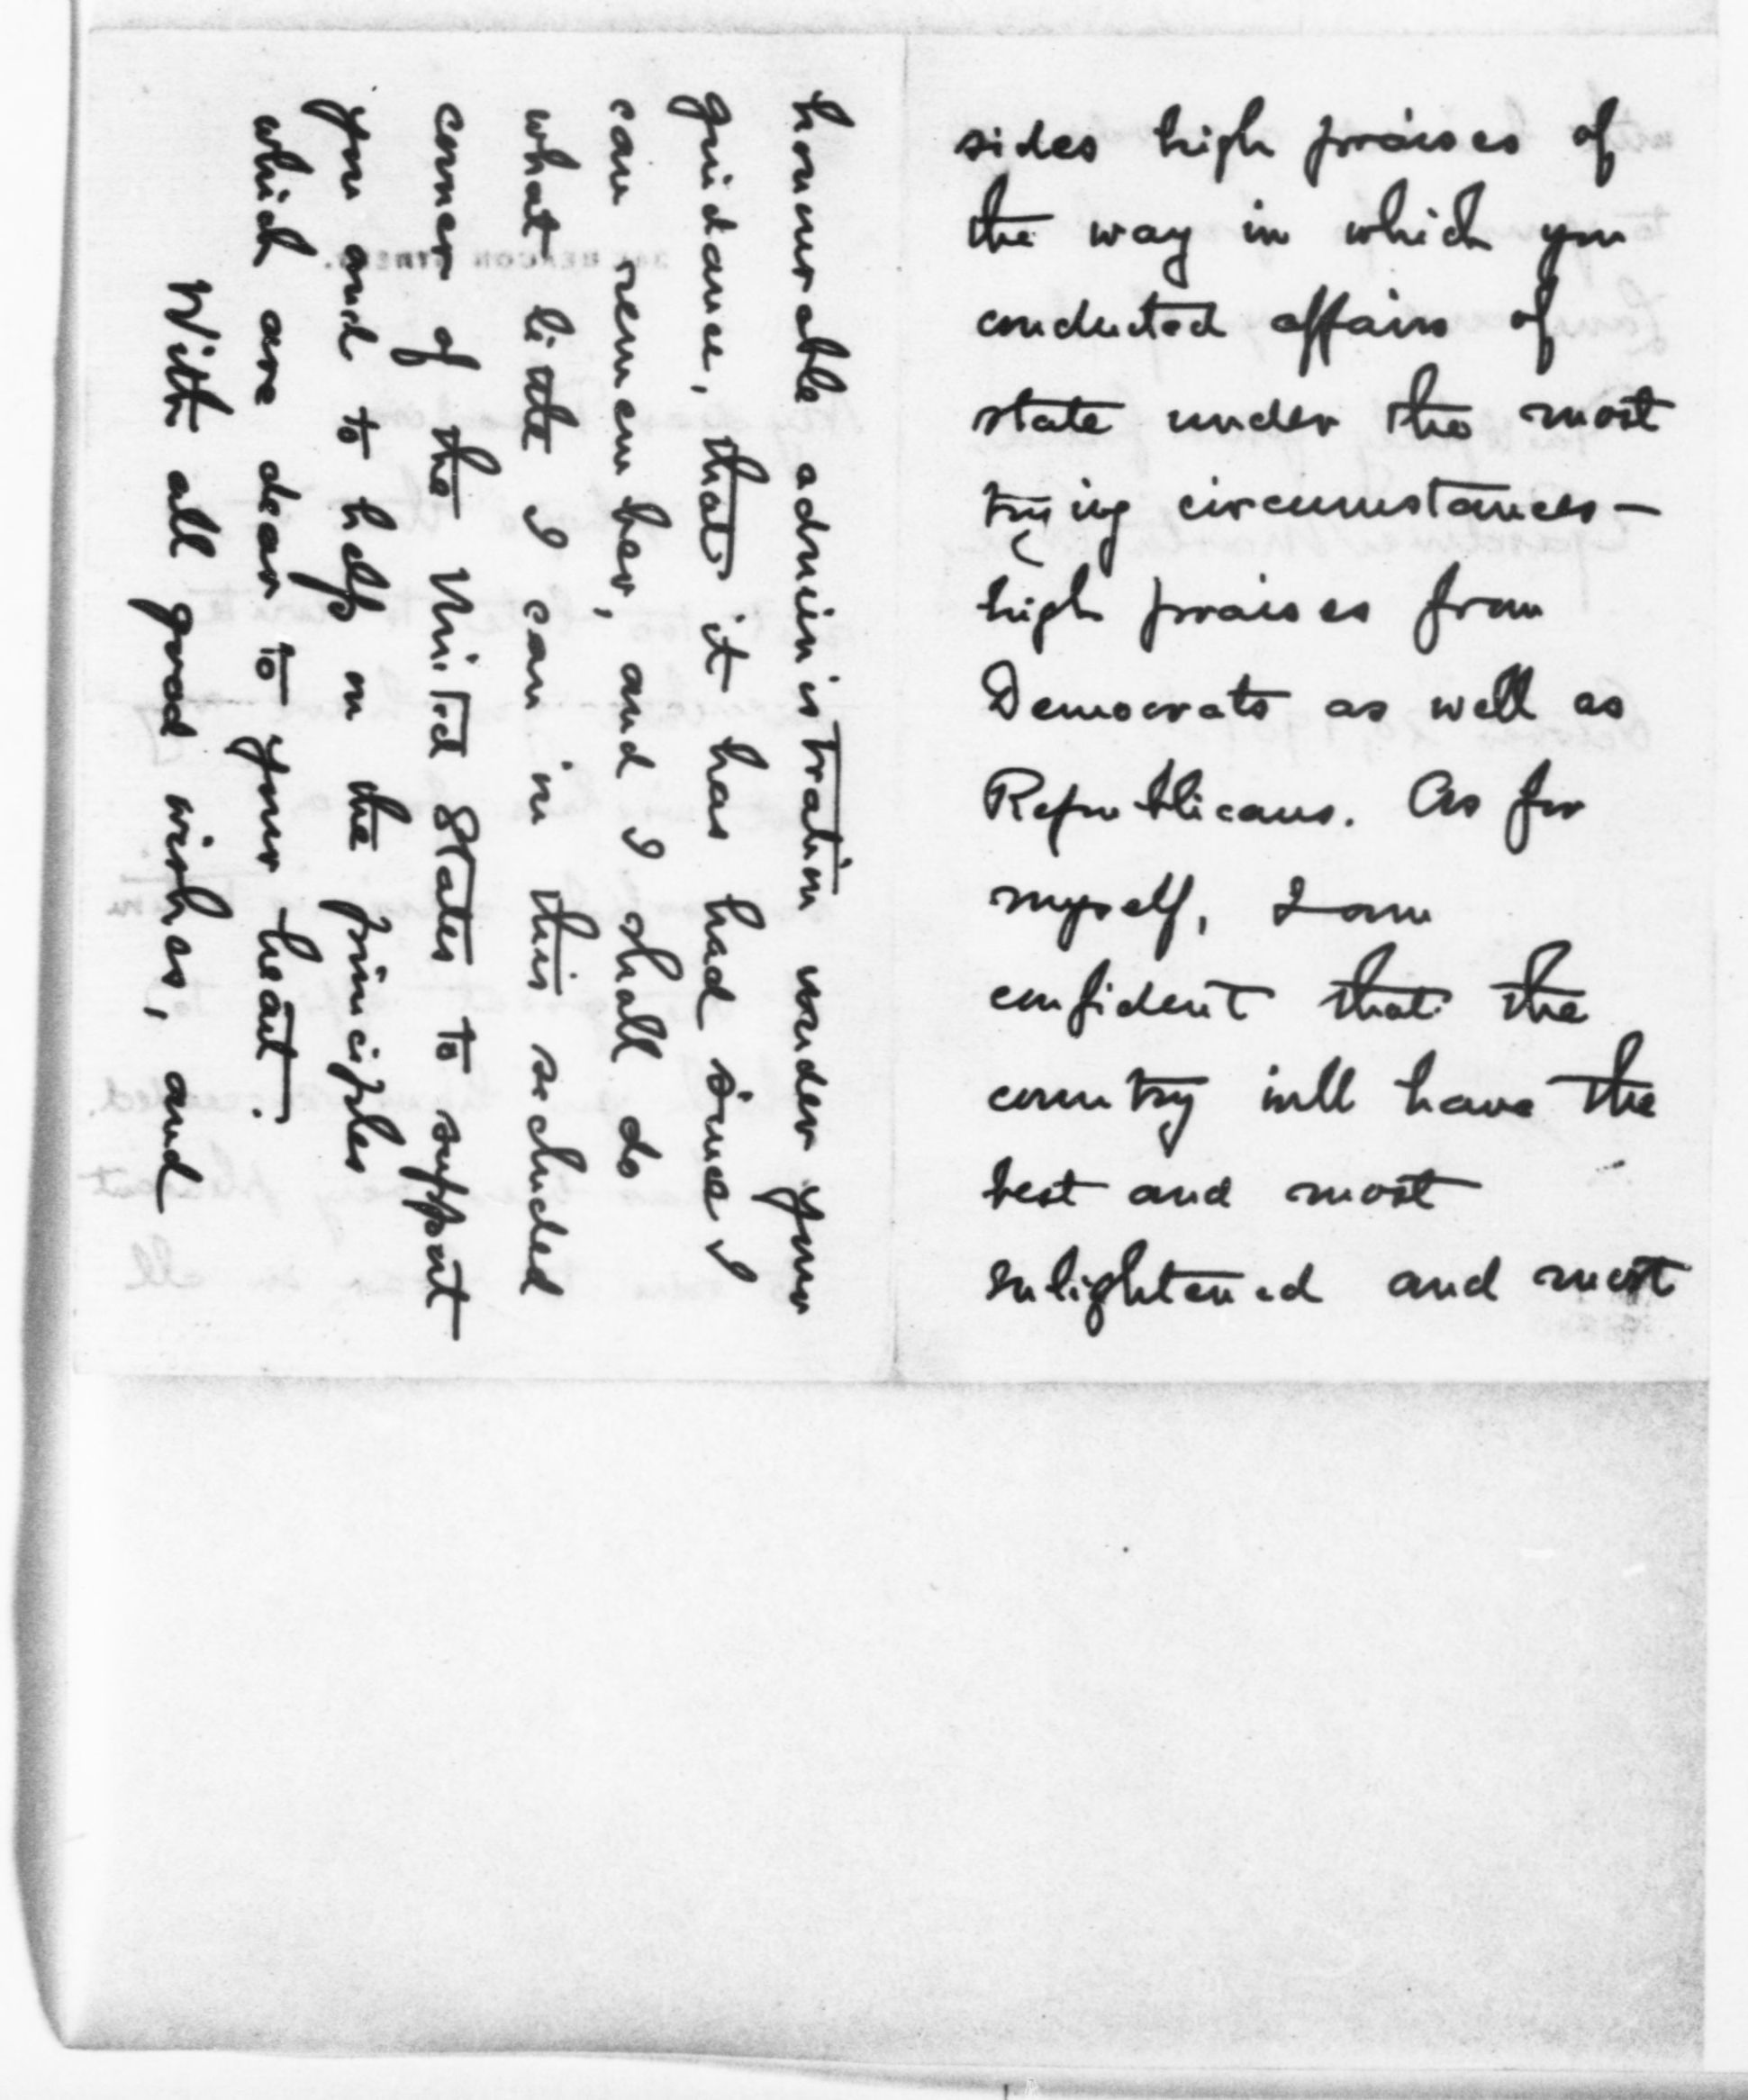 sides high praises of
the way in which you
conducted affairs of
state under the most
trying circumstances —
high praises from
Democrats as well as
Republicans. As for
myself, I am
confident that the
country will have the
best and most
enlightened and most
honourable administration under your
guidance, that it has had since I
can remember, and I shall do
what little I can in this secluded
corner of the United States to support
you and to help on the principles
which are dear to your heart.
With all good wishes, and